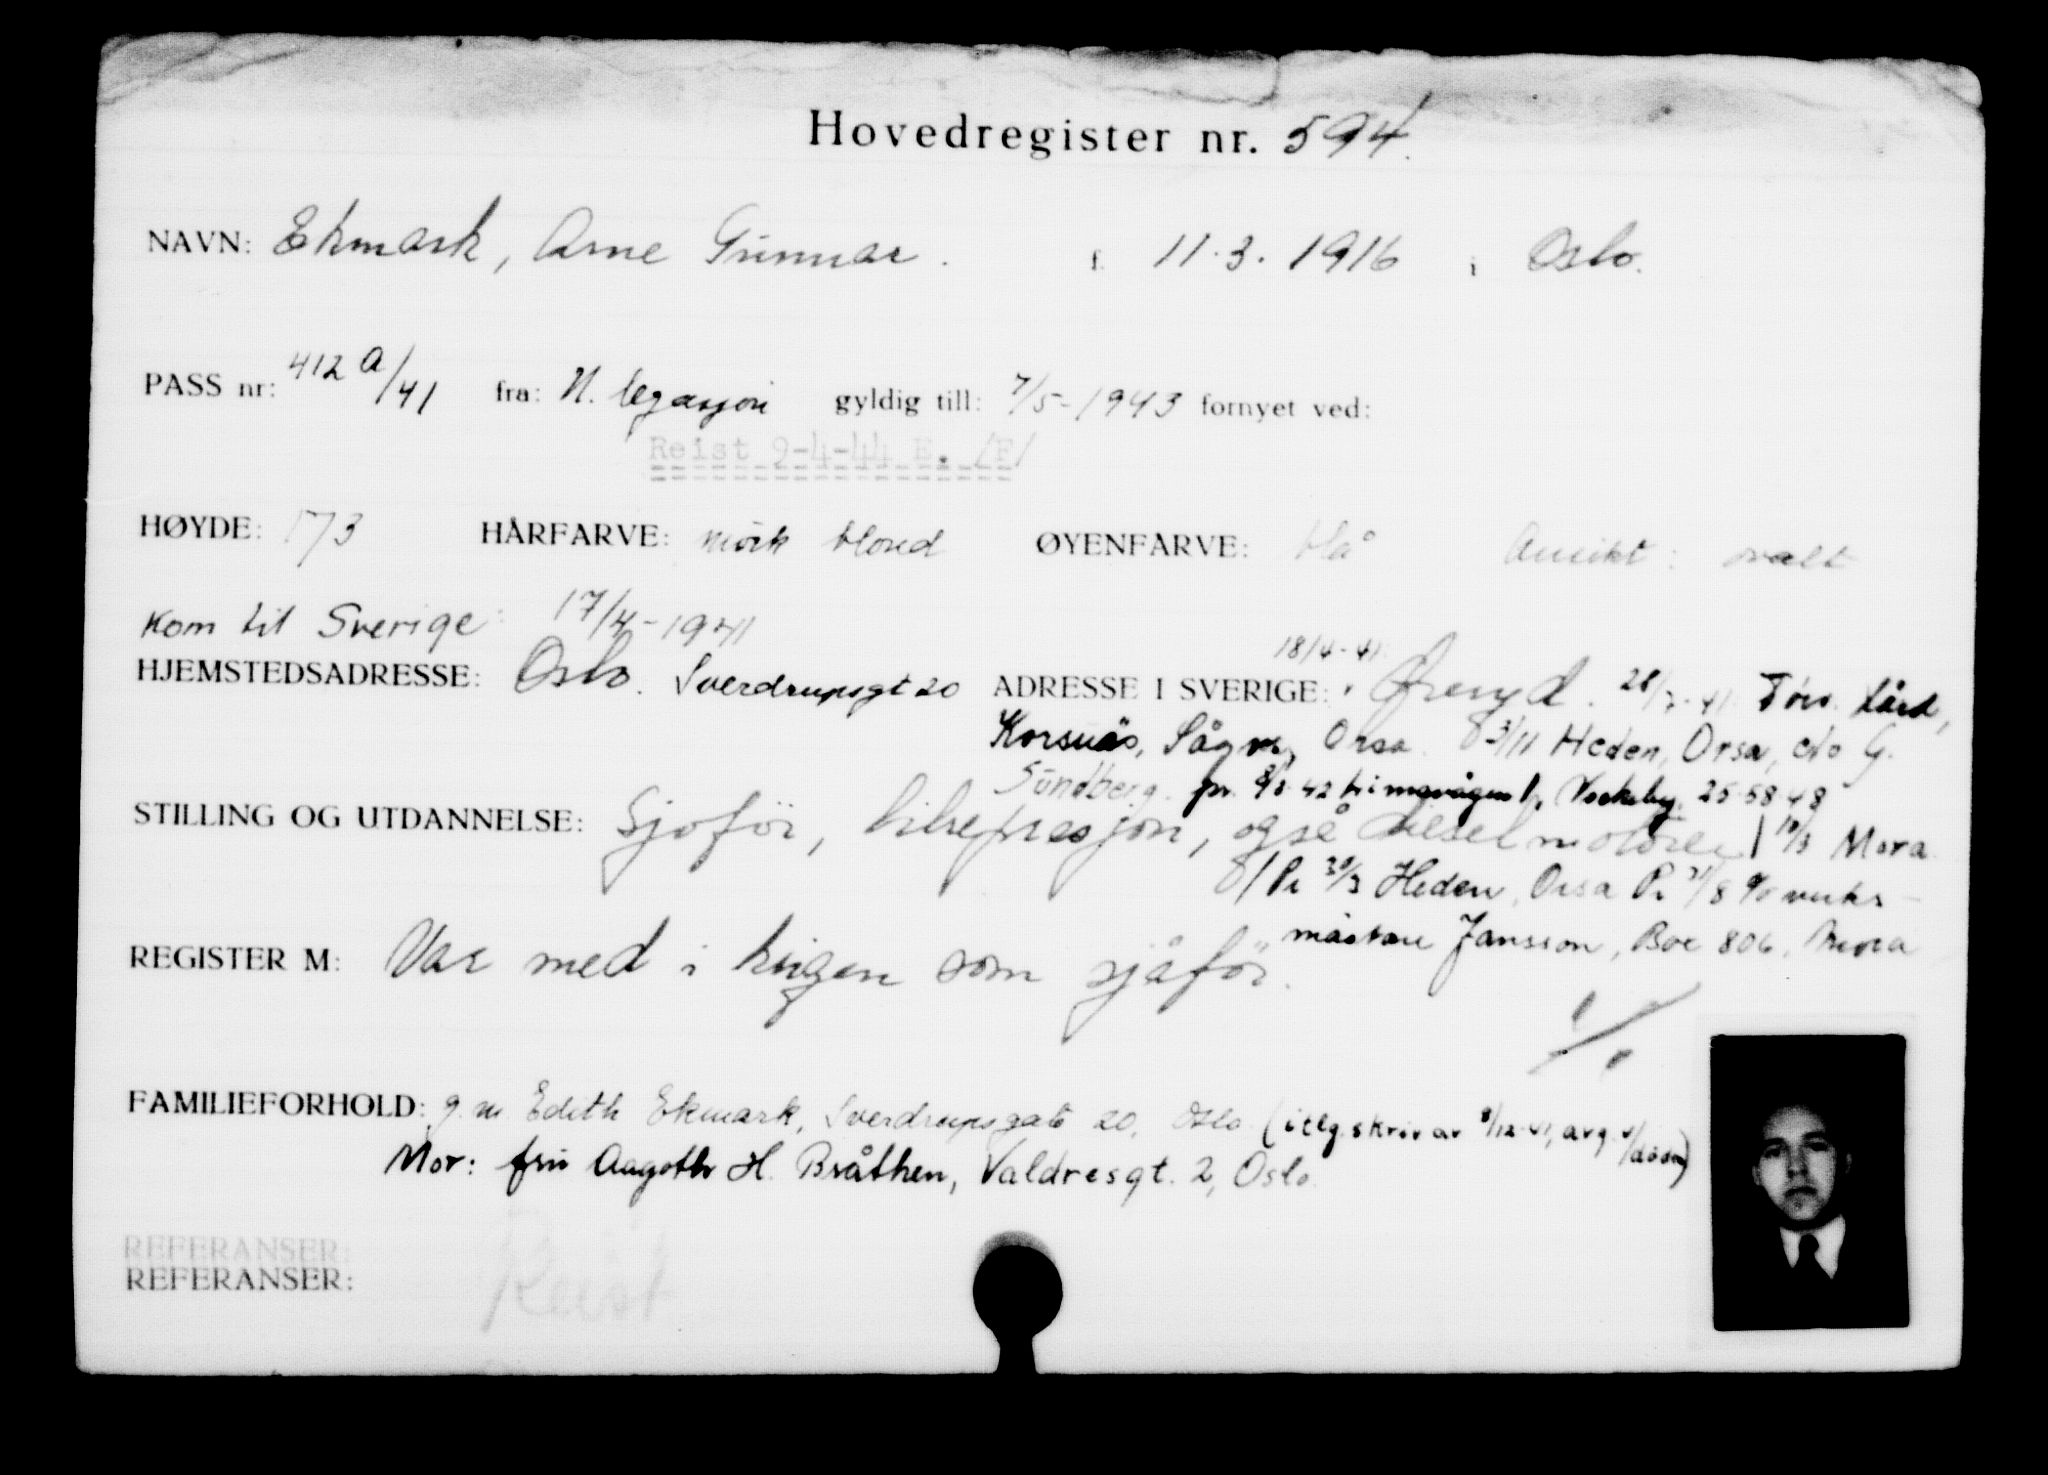 Hovedregister nr. 594.
NAVN: Ekmark, Arne Gunnar. f. 11.3.1916 i Oslo.
PASS nr: 412 a/41 fra: N. legasjon gyldig till: 7/5-1943 fornyet ved:
Reist 9-4-44 E. /F/
HØYDE: 173 HÅRFARVE: mörk blond ØYENFARVE: blå Ansikt: ovalt
Kom til Sverige: 17/4-1941
18/4-41
HJEMSTEDSADRESSE: Oslo. Sverdrupsgt 20 ADRESSE I SVERIGE: Öreryd. 28/7-41
Korsnäs, Orsa. 3/11 Heden, Orsa, c/o G.
Sundberg. pr. 42 25 58 48
STILLING OG UTDANNELSE: Sjofför, bilrepresjon, også dieselmotorer 10/3 Mora
Pr 30/3 Heden, Orsa Pr 31/8 c/o verks-
mästare Jansson, Box 806, Mora
REGISTER M: Var med i krigen som sjåför.
FAMILIEFORHOLD: g. m Edith Ekmark, Sverdrupsgate 20, Oslo (iflg. skriv av 8/12-41, avg. v/døden)
Mor: fru Aagoth H. Bråthen, Valdresgt. 2, Oslo
REFERANSER:
REFERANSER: Reist